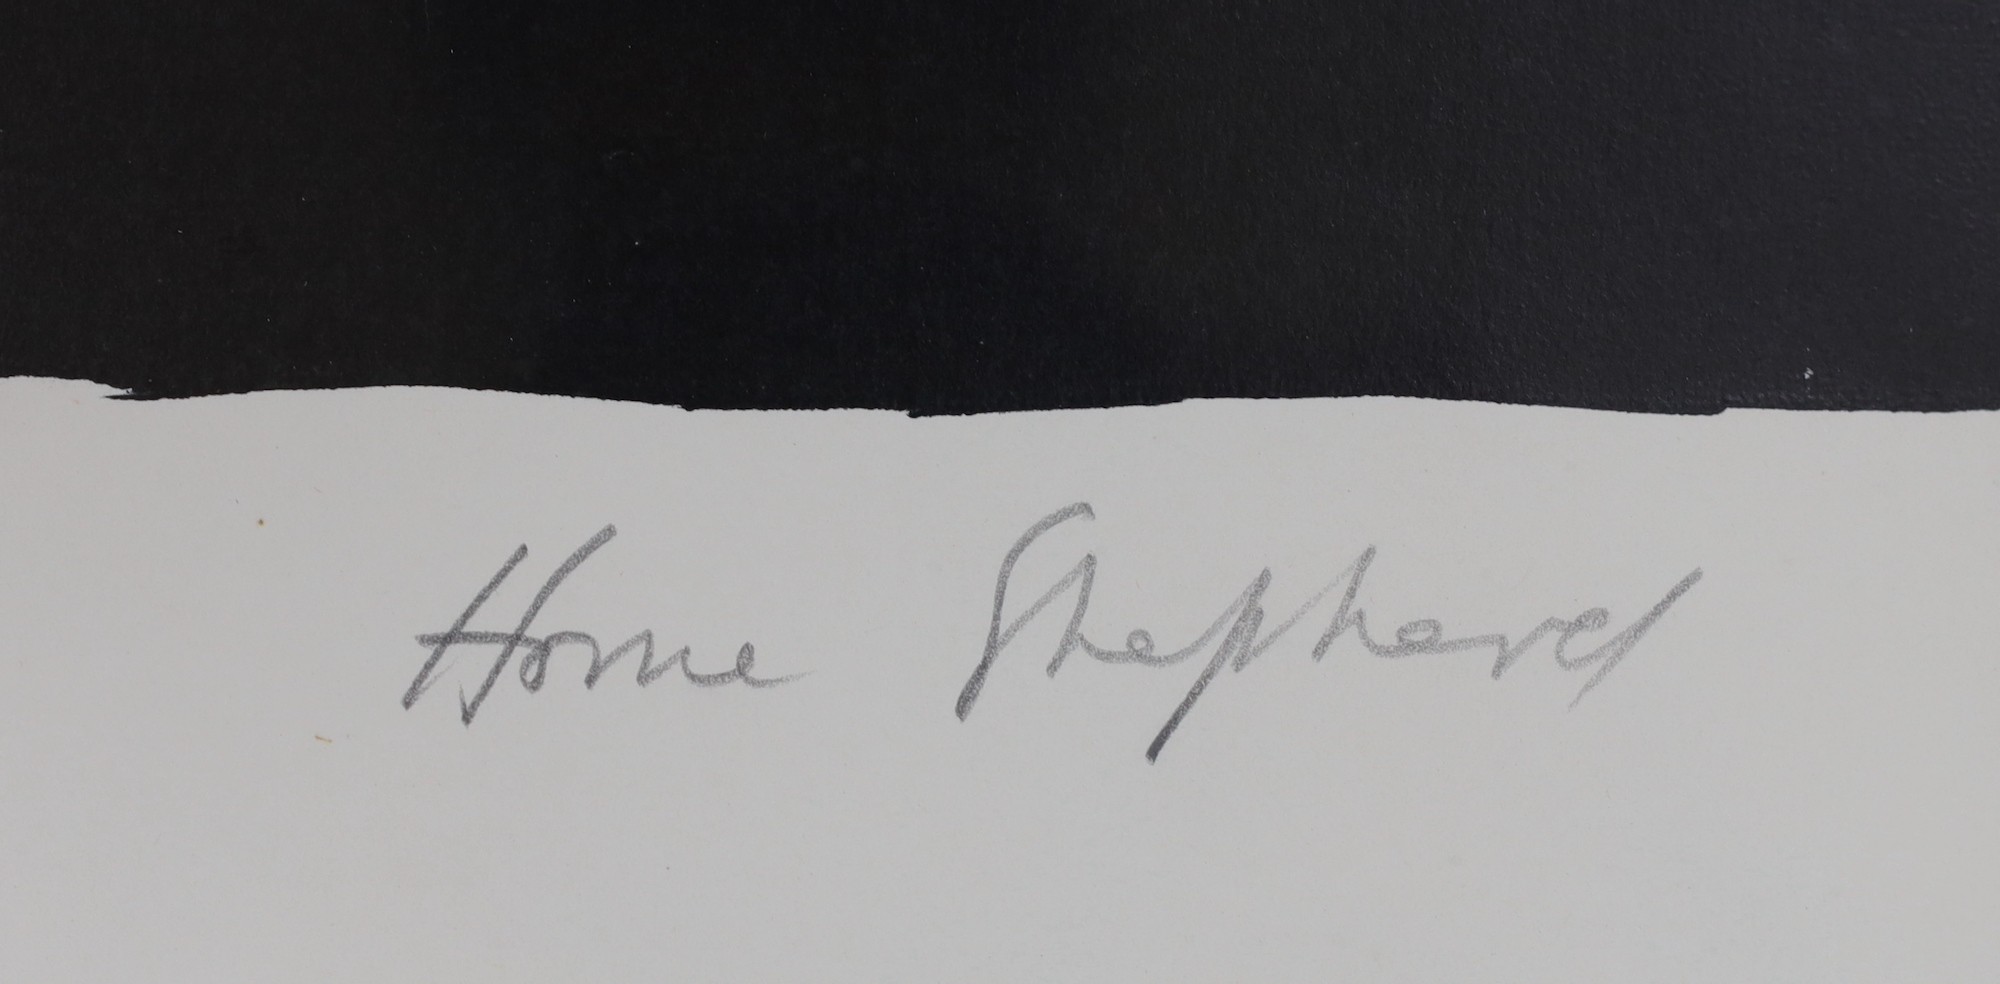 Horne Shepherd